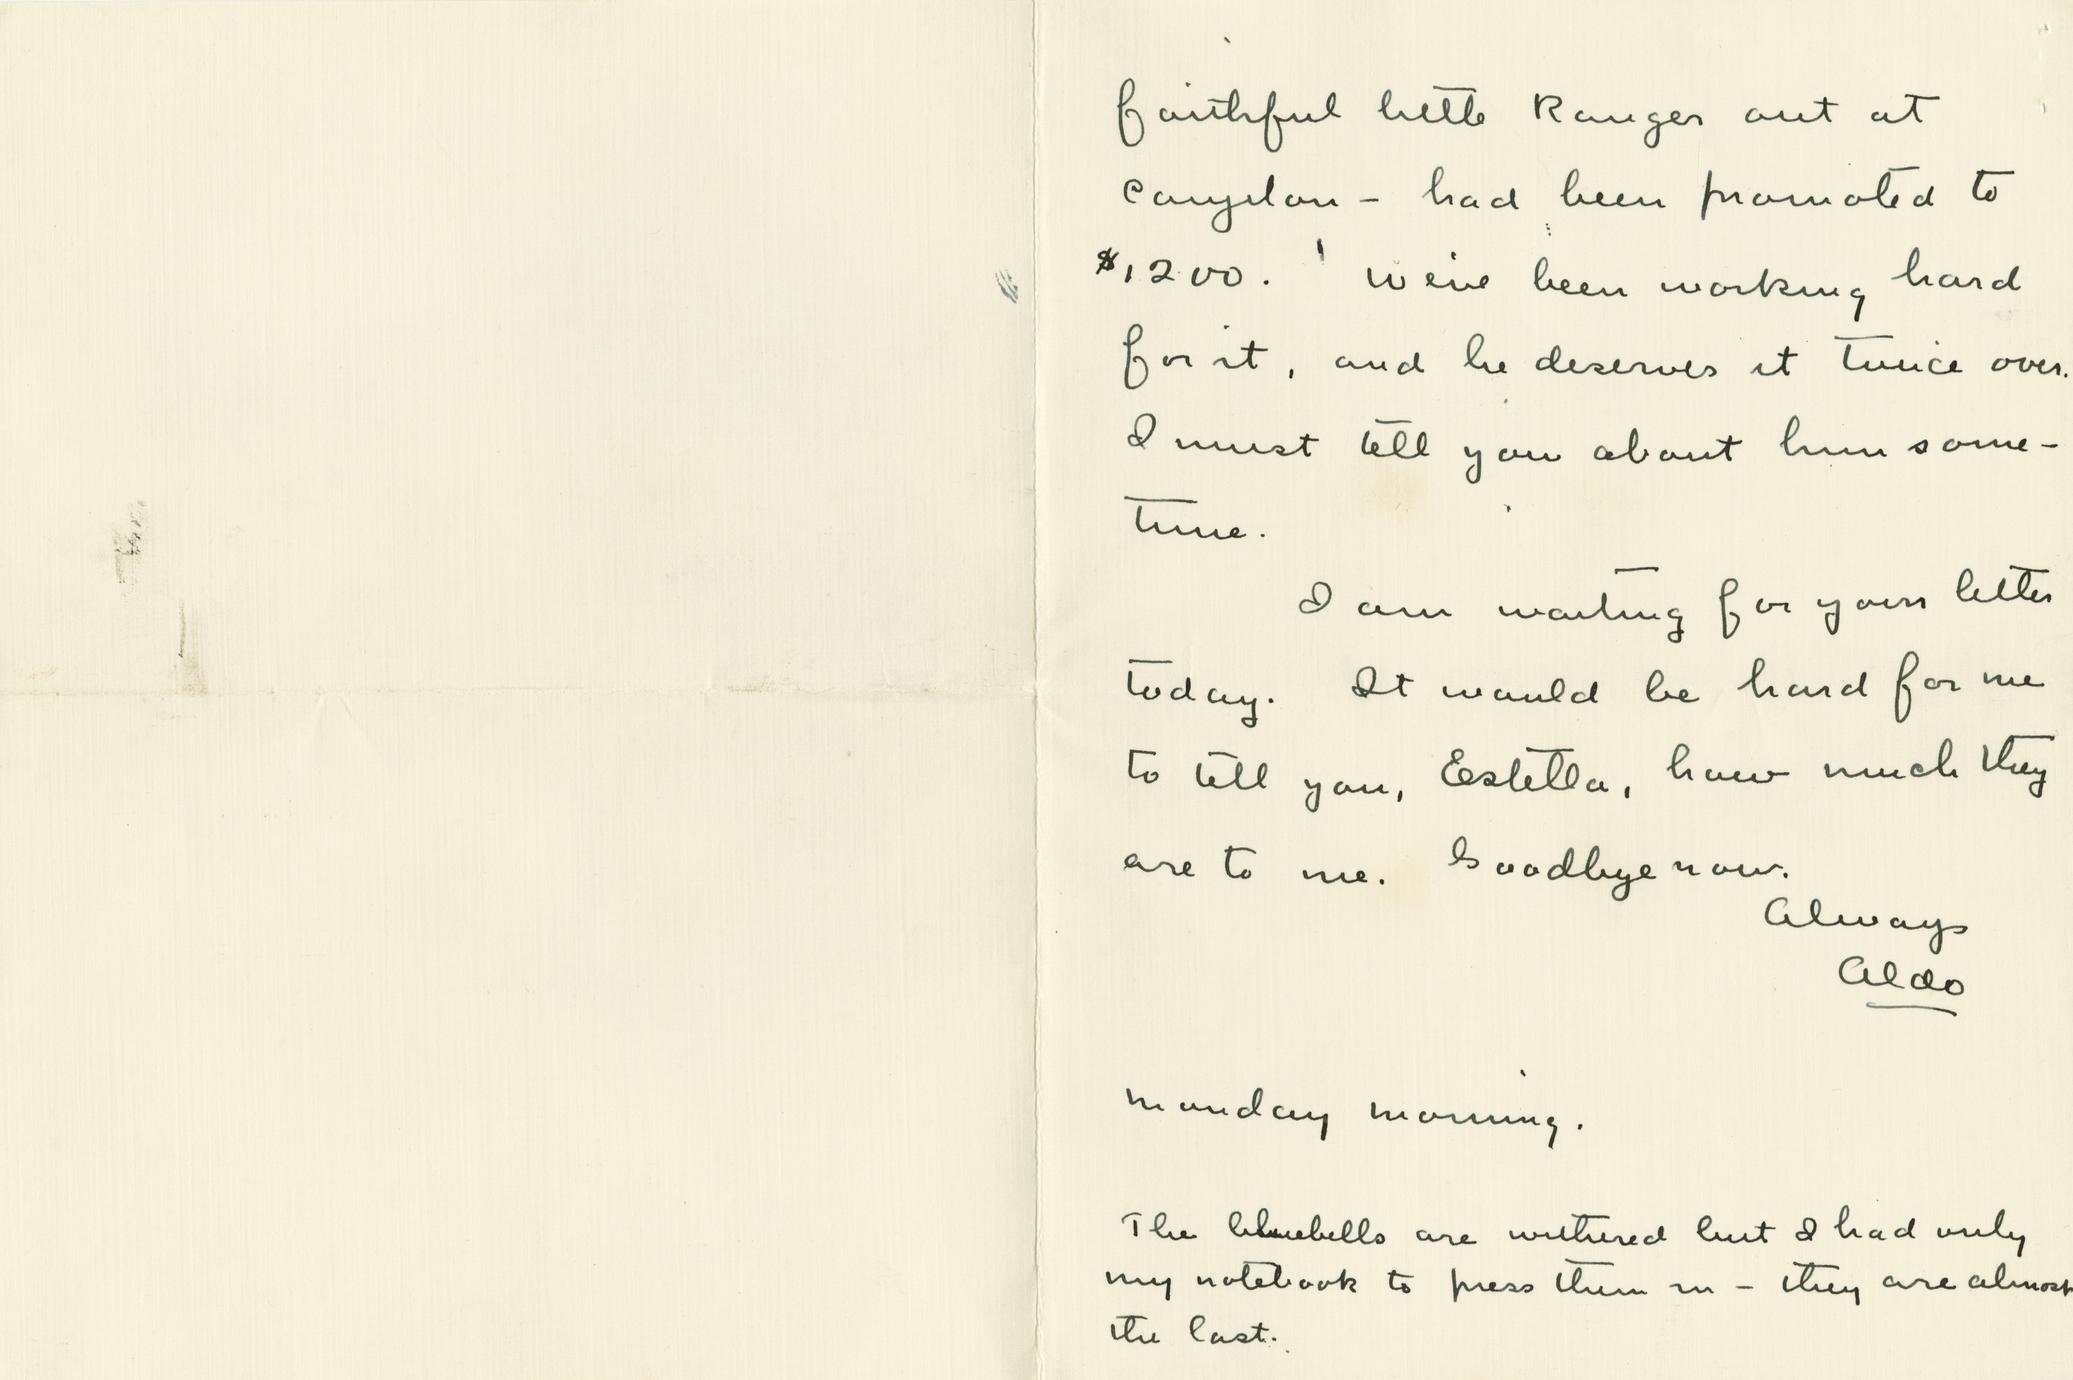 faithful little Ranger out at
Canjilon – had been promoted to
$1200. We've been working hard
for it, and he deserves it twice over.
I must tell you about him some-
time.
I am waiting for your letter
today. It would be hard for me
to tell you, Estella, how much they
are to me. Goodbye now.
Always
Aldo
Monday morning.
The bluebells are withered but I had only
my notebook to press them in – they are almost
the last.